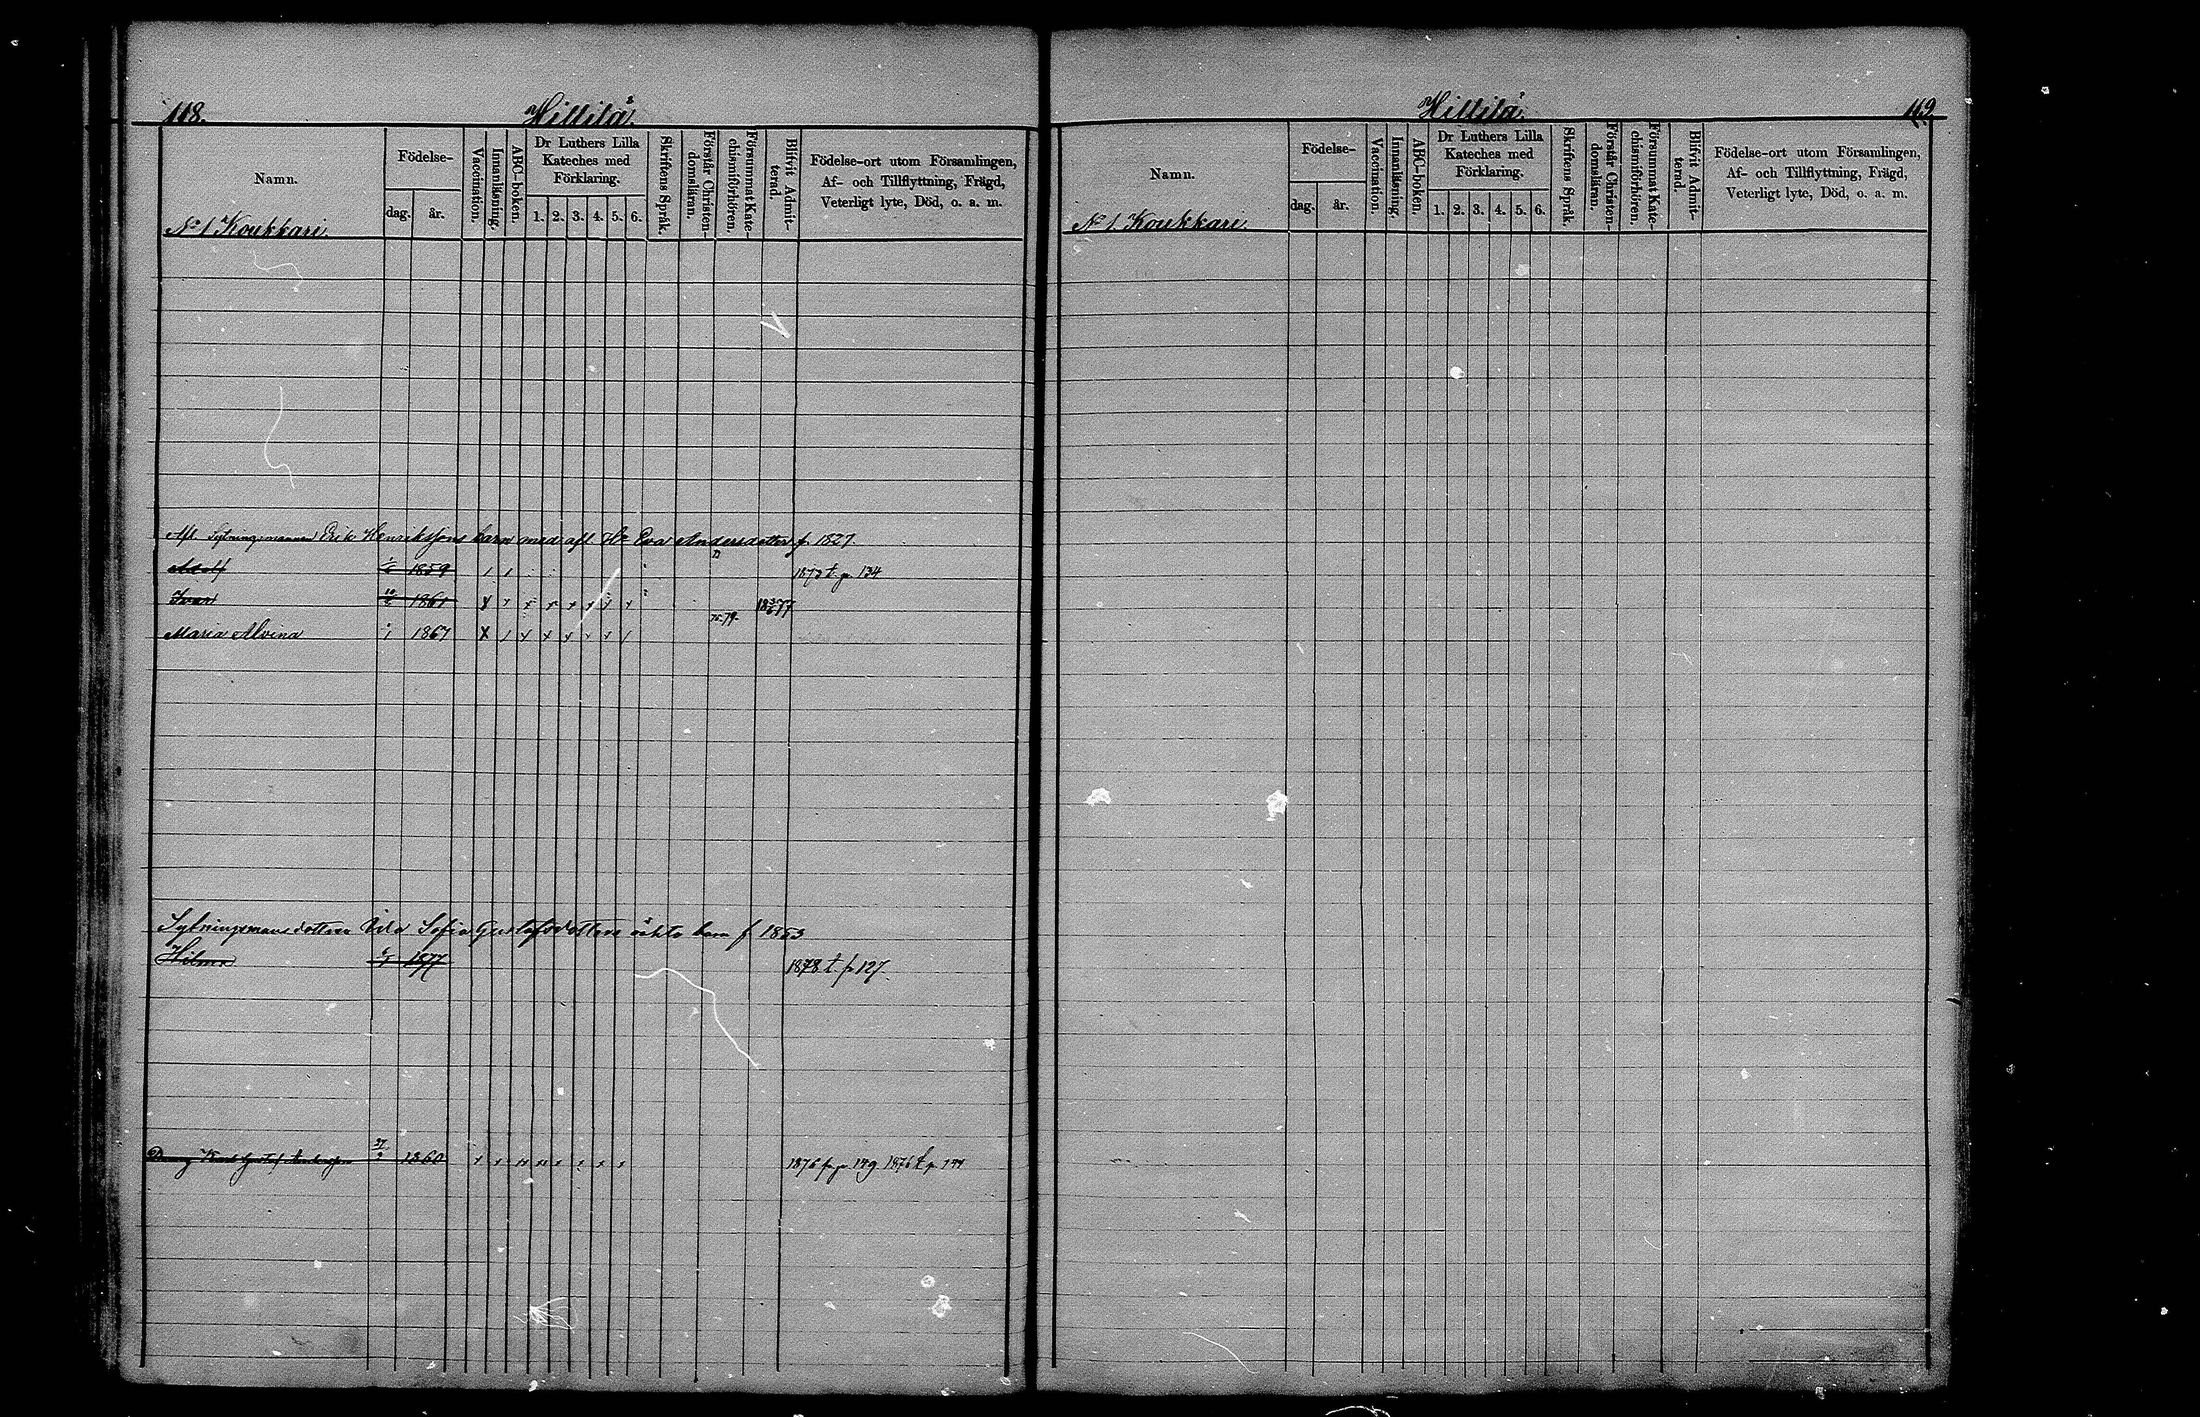 118.
Hillilä
Namn.
Födelse-
dag. år.
Vaccination.
Innanläsning.
ABC-boken.
Dr Luthers Lilla
Kateches med
Förklaring.
1. 2. 3. 4. 5. 6.
Skriftens Språk.
Förstår Christen-
domsläran.
Försummat Kate-
chismiförhören.
Blifvit Admit-
terad.
Födelse-ort utom Församlingen,
Af- och Tillflyttning, Frägd,
Veterligt lyte, Död, o. a. m.
No 1 Koukkari.
Afl. Sytningsmannen Erik Henrikssons barn med afl. H. Eva Andersdotter f 1827
Adolf 1859 1873 t. p. 134
Ivar 1861 77
Maria Alvina 1867 75-79
Sytningsmansdottern Sofia Gustafsdotters oäkta barn f 1853
Hilma 1877 1878 t. p 127.
Dreng Karl Gustaf 27 1860 1876 fr p. 149 1876 t. p.
Hillilä
119.
Namn.
Födelse-
dag. år.
Vaccination.
Innanläsning.
ABC-boken.
Dr Luthers Lilla
Kateches med
Förklaring.
1. 2. 3. 4. 5. 6.
Skriftens Språk.
Förstår Christen-
domsläran.
Försummat Kate-
chismiförhören.
Blifvit Admit-
terad.
Födelse-ort utom Församlingen,
Af- och Tillflyttning, Frägd,
Veterligt lyte, Död, o. a. m.
No 1. Koukkari.